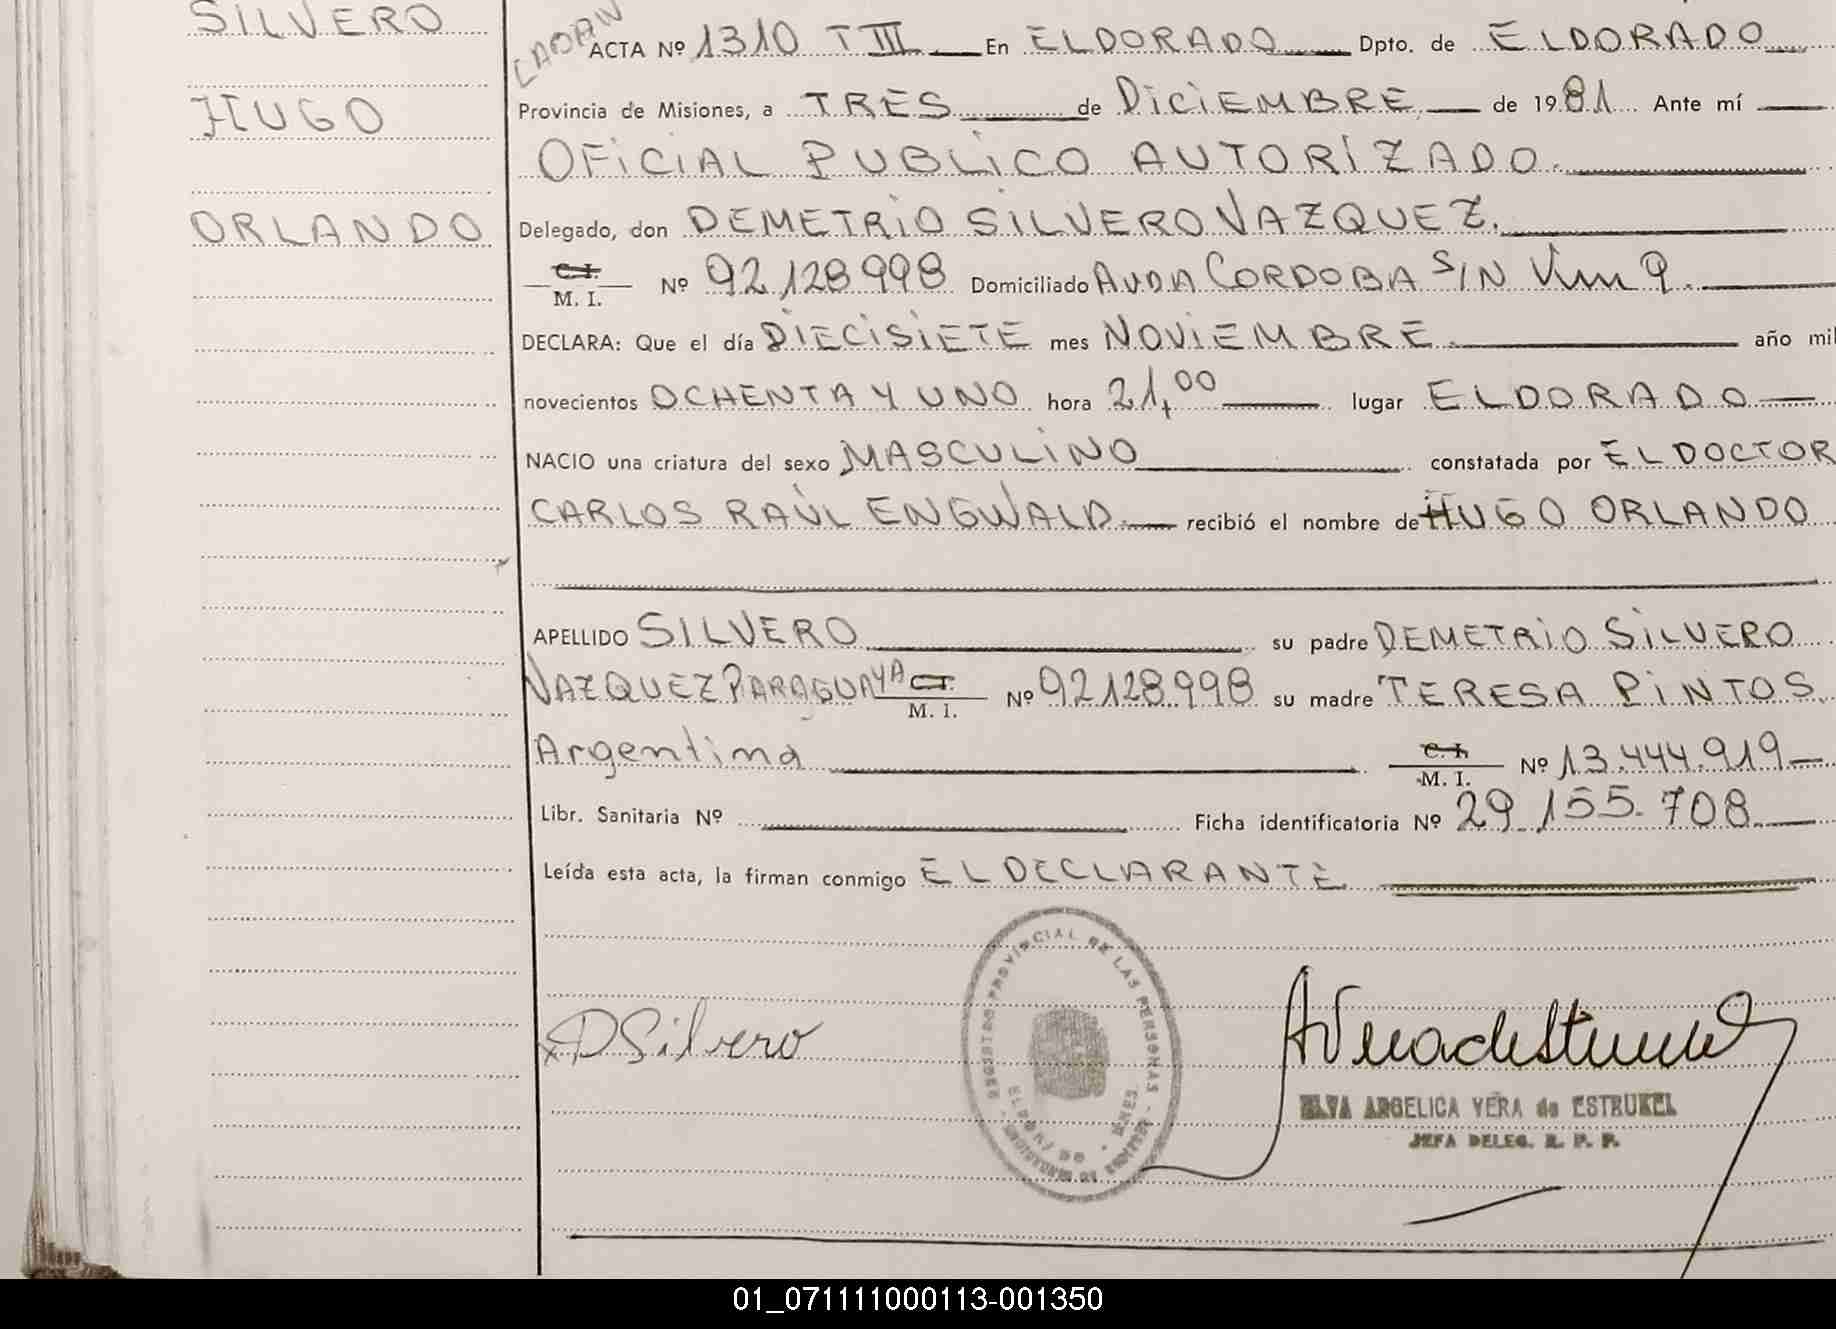 SILVERO
HUGO
ORLANDO
ACTA Nº 1310 T III En ELDORADO Dpto. de ELDORADO
Provincia de Misiones, a TRES de DICIEMBRE de 1981 Ante mí
OFICIAL PUBLICO AUTORIZADO.
Delegado, don DEMETRIO SILVERO VAZQUEZ.
C.I.
M. I. Nº 92.128.998 Domiciliado AVDA CORDOBA S/N Km 9.
DECLARA: Que el día DIECISIETE mes NOVIEMBRE. año mil
novecientos OCHENTA Y UNO hora 21,00 lugar ELDORADO
NACIO una criatura del sexo MASCULINO constatada por EL DOCTOR
CARLOS RAÚL ENGWALD. recibió el nombre de HUGO ORLANDO
APELLIDO SILVERO su padre DEMETRIO SILVERO
VAZQUEZ PARAGUAYA C.I.
M. I. Nº 92.128.998 su madre TERESA PINTOS
Argentina C.I.
M. I. Nº 13.444.919
Libr. Sanitaria Nº Ficha identificatoria Nº 29.155.708
Leída esta acta, la firman conmigo EL DECLARANTE
REGISTRO PROVINCIAL DE LAS PERSONAS
ELDORADO - MNES.
x D Silvero
ELVA ANGELICA VERA de ESTRUKEL
JEFA DELEG. R. P. P.
01_071111000113-001350